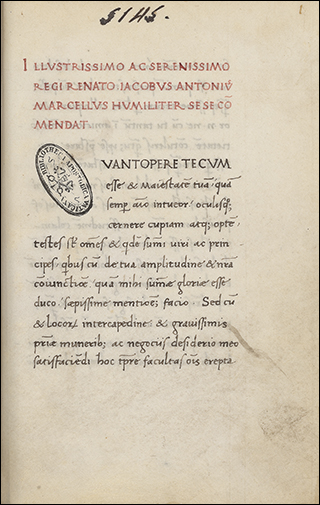 5145.
1
ILLVSTRISSIMO AC SERENISSIMO
REGI RENATO IACOBVS ANTONIV̄
MARCELLVS HVMILITER SESE CŌ
MENDAT
VANTOPERE TECVM
esse & Maiestatē tuā, quā
semp̄ aīo intueor oculisq;
cernere cupiam atq; optē,
testes st̄ omēs & qdē sum̄i viri ac prin
cipes, qbus cū de tua amplitudine & nr̄a
coniunctiōe quā mihi sum̄e glorie esse
duco, sæpissime mentionē facio. Sed cū
& locoꝝ intercapedine & gravissimis
patriæ munerib; ac negociis desiderio meo
satisfaciēdi hoc tp̄re facultas oīs erepta